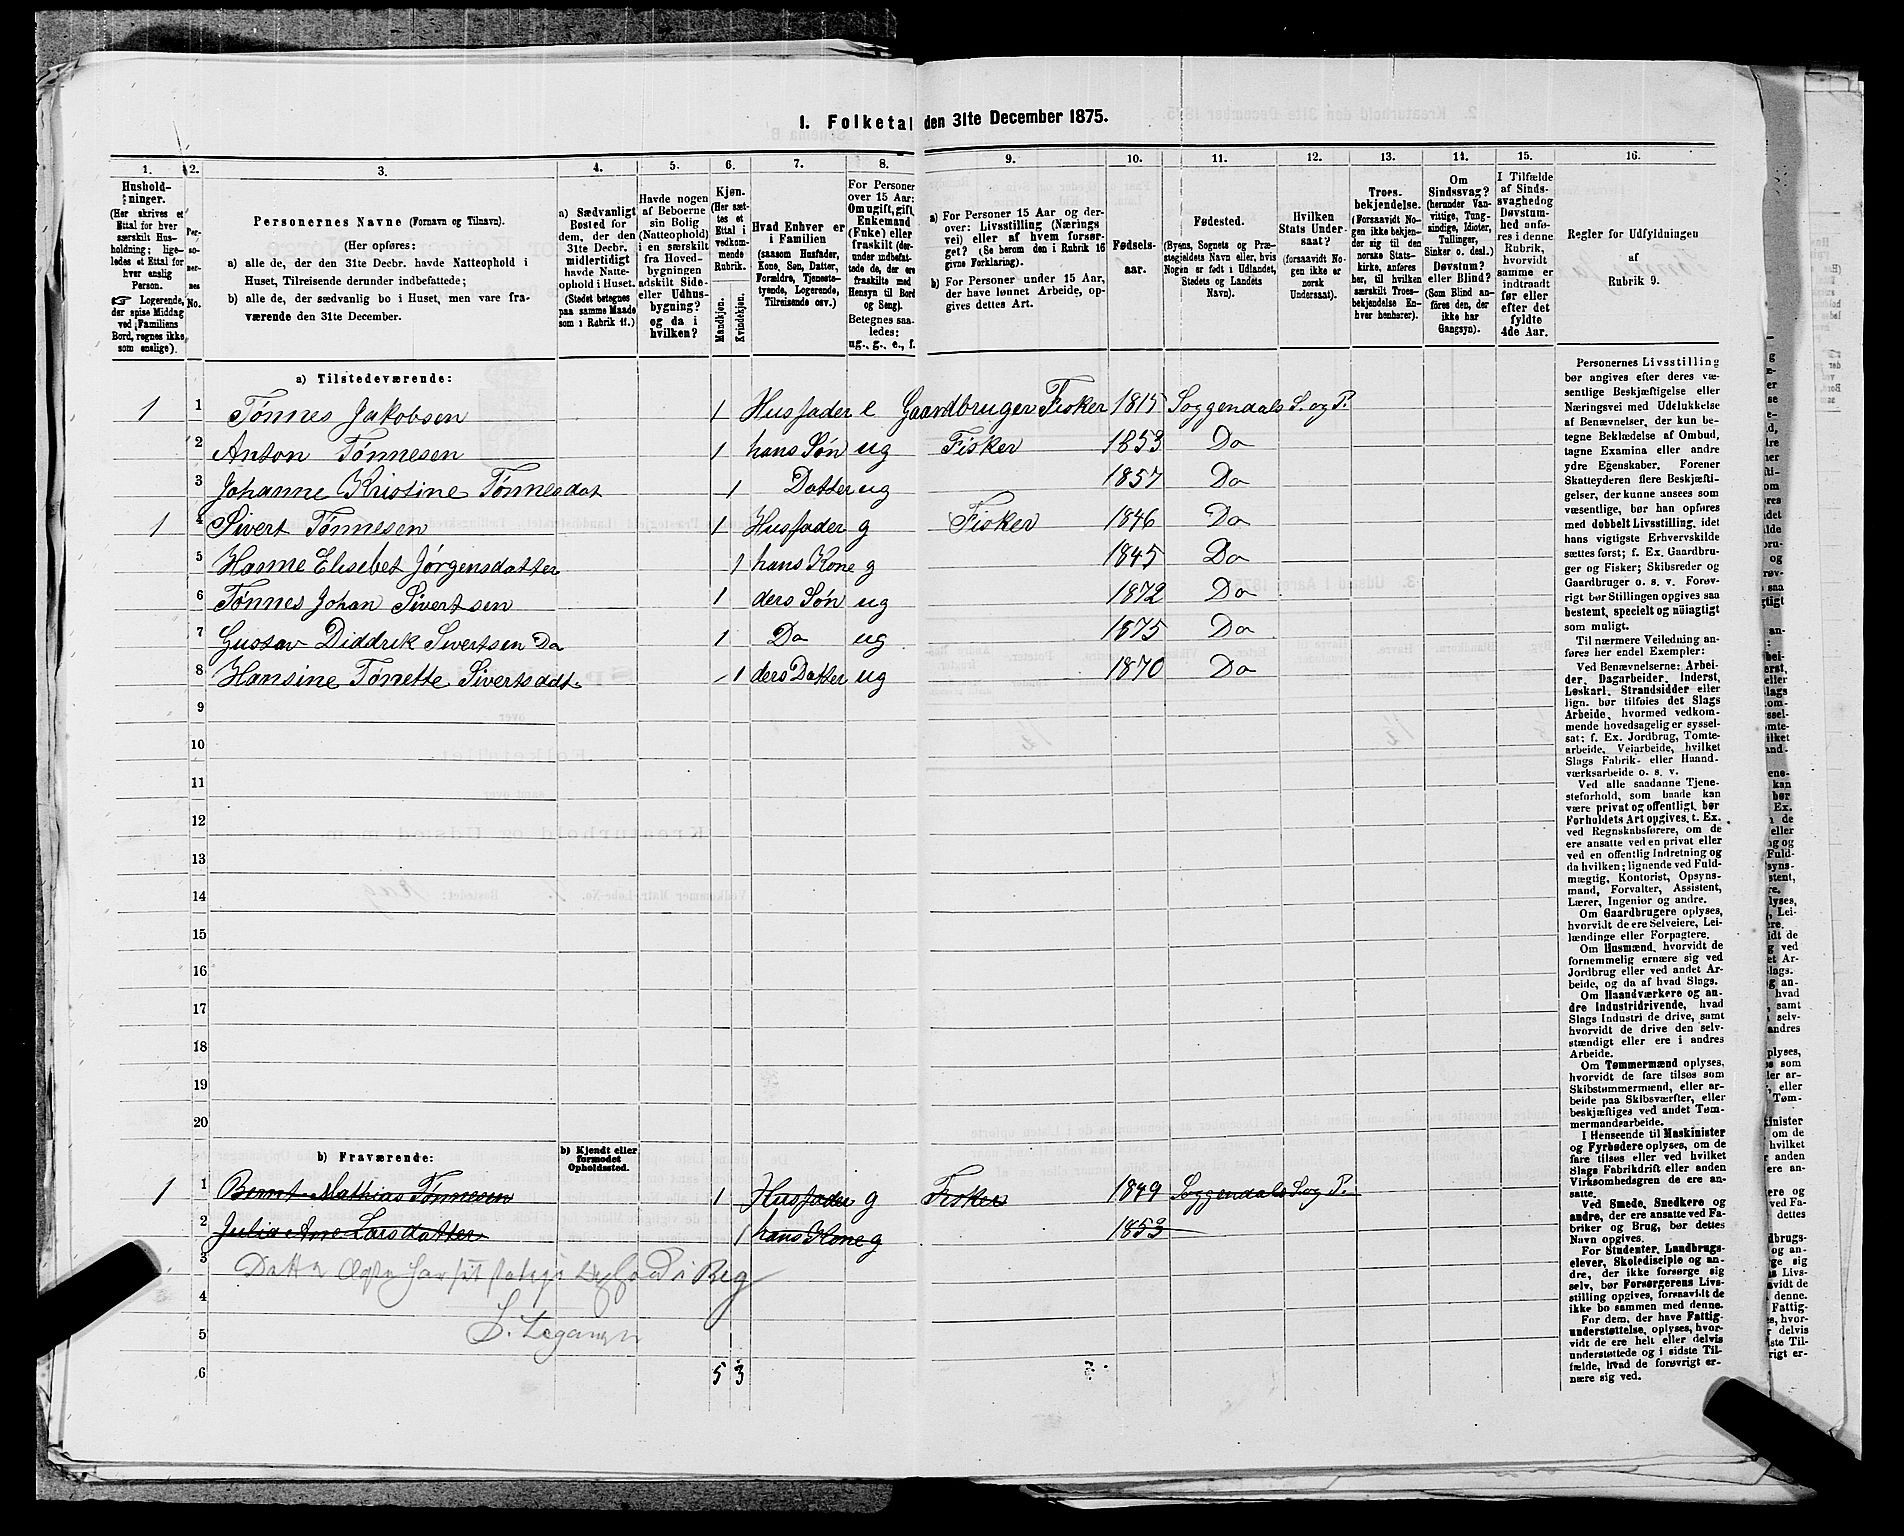 I. Folketal den 31te December 1875.
1. 2. 3. 4. 5. 6. 7. 8. 9. 10. 11. 12. 13. 14. 15. 16.
Hushold-
ninger.
(Her skrives et
Ettal for hver
særskilt Hus-
holdning; lige-
ledes et Ettal for
hver enslig
Person.
☞ Logerende,
der spise Middag
ved Familiens
Bord, regnes ikke
som enslige).
Per-
so-
ner-
nes
No.
Personernes Navne (Fornavn og Tilnavn).
(Her opføres:
a) alle de, der den 31te Decbr. havde Natteophold i
Huset, Tilreisende derunder indbefattede;
b) alle de, der sædvanlig bo i Huset, men vare fra-
værende den 31te December.
a) Sædvanligt
Bosted for
dem, der den
31te Decbr.
midlertidigt
havde Natte-
ophold i Huset.
(Stedet betegnes
paa samme Maade
som i Rubrik 11.)
Havde nogen
af Beboerne
sin Bolig
(Natteophold)
i en særskilt
fra Hoved-
bygningen
adskilt Side-
eller Udhus-
bygning?
og da i
hvilken?
Kjøn.
(Her sæt-
tes et
Ettal i
vedkom-
mende
Rubrik.
Mandkjøn.
Kvindekjøn.
Hvad Enhver er
i Familien
(saasom Husfader,
Kone, Søn, Datter,
Forældre, Tjeneste-
tyende, Logerende,
Tilreisende osv.)
For Personer
over 15 Aar:
Om ugift, gift,
Enkemand
(Enke) eller
fraskilt (der-
under indbefat-
tede de, der ere
fraskilte med
Hensyn til Bord
og Seng).
Betegnes saa-
ledes:
ug., g., e., f.
a) For Personer 15 Aar og der-
over: Livsstilling (Nærings
vei) eller af hvem forsør-
get? (Se herom den i Rubrik 16
givne Forklaring).
b) For Personer under 15 Aar,
der have lønnet Arbeide, op-
gives dettes Art.
Fødsels-
aar.
Fødested.
(Byens, Sognets og Præ-
stegjeldets Navn eller, hvis
Nogen er født i Udlandet,
Stedets og Landets
Navn).
Hvilken
Stats Under-
saat?
(forsaavidt No-
gen ikke er
norsk
Undersaat).
Troes-
bekjendelse.
(Forsaavidt No-
gen ikke bekjen-
der sig til den
norske Stats-
kirke, anføres
her, til hvilken
særskilt Troes-
bekjendelse En-
hver henhører).
Om
Sindssvag?
(herunder Van-
vittige, Tung-
sindige, Idioter,
Tullinger,
Sinker o. desl.)
Døvstum?
eller Blind?
(Som Blind an-
føres den, der
ikke har
Gangsyn).
I Tilfælde
af Sinds-
svaghed og
Døvstum-
hed anfø-
res i denne
Rubrik,
hvorvidt
samme er
indtraadt
før eller
efter det
fyldte
4de Aar.
Regler for Udfyldningen
af
Rubrik 9.
a) Tilstedeværende:
1 1 Tønnes Jakobsen 1 Husfader e Gaardbruger Fisker 1815 Soggendals S. og P.
2 Anton Tønnesen 1 hans Søn ug Fisker 1853 Do
3 Johanne Kristine Tønnesdat 1 Datter ug 1857 Do
1 4 Sivert Tønnesen 1 Husfader g Fisker 1846 Do
5 Hanne Elisebet Jørgensdatter 1 hans Kone g 1845 Do
6 Tønnes Johan Sivertsen 1 ders Søn ug 1872 Do
7 Gustav Diddrik Sivertsen Do 1 Do ug 1875 Do
8 Hansine Tønette Sivertsdat. 1 ders Datter ug 1870 Do
9
10
11
12
13
14
15
16
17
18
19
20
b) Fraværende:
b) Kjendt eller
formodet
Opholdssted.
1 1 Bernt Mathias Tønnesen 1 Husfader g Fisker 1849 Soggendals S. og P.
2 Julia Ane Larsdatter 1 hans Kone g 1853
3
4
5
6 5 3
Personernes Livsstilling
bør angives efter deres væ-
sentlige Beskjæftigelse eller
Næringsvei med Udelukkelse
af Benævnelser, der kun be-
tegne Beklædelse af Ombud,
tagne Examina eller andre
ydre Egenskaber. Forener
Skatteyderen flere Beskjæfti-
gelser, der kunne ansees som
væsentlige, bør han opføres
med dobbelt Livsstilling, idet
hans vigtigste Erhvervskilde
sættes først; f. Ex. Gaardbru-
ger og Fisker; Skibsreder og
Gaardbruger o. s. v. Forøv-
rigt bør Stillingen opgives saa
bestemt, specielt og nøiagtigt
som muligt.
Til nærmere Veiledning an-
føres her endel Exempler:
Ved Benævnelserne: Arbei-
der, Dagarbeider, Inderst,
Løskarl, Strandsidder eller
lign. bør tilføies det Slags
Arbeide, hvormed vedkom-
mende hovedsagelig er syssel-
sat; f. Ex. Jordbrug, Tomte-
arbeide, Veiarbeide, hvilket
Slags Fabrik- eller Haand-
værksarbeide o. s. v.
Ved alle saadanne Tjene-
steforhold, som baade kan
være privat og offentligt, bør
Forholdets Art opgives, t. Ex.
ved Regnskabsførere, om de
ere ansatte ved en privat eller
ved en offentlig Indretning og
da hvilken; lignende ved Fuld-
mægtig, Kontorist, Opsyns-
mand, Forvalter, Assistent,
Lærer, Ingeniør og andre.
Om Gaardbrugere oplyses,
hvorvidt de ere Selveiere, Lei-
lændinge eller Forpagtere.
Om Husmænd, hvorvidt de
fornemmelig ernære sig ved
Jordbrug eller ved andet Ar-
beide, og da af hvad Slags.
Om Haandværkere og an-
dre Industridrivende, hvad
Slags Industri de drive, samt
hvorvidt de drive den selv-
stændigt eller ere i andres
Arbeide.
Om Tømmermænd oplyses,
hvorvidt de fare tilsøs som
Skibstømmermænd, eller ar-
beide paa Skibsværfter, eller
beskjæftiges ved andet Tøm-
mermandsarbeide.
I Henseende til Maskinister
og Fyrbødere oplyses, om de
fare tilsøs eller ved hvilket
Slags Fabrikdrift eller anden
Virksomhedsgren de ere an-
satte.
Ved Smede, Snedkere og
andre, der ere ansatte ved Fa-
briker og Brug, bør dettes
Navn opgives.
For Studenter, Landbrugs-
elever, Skoledisciple og an-
dre, der ikke forsørge sig
selv, bør Forsørgerens Livs-
stilling opgives, forsaavidt de
ikke bo sammen med denne.
For dem, der have Fattig-
understøttelse, oplyses, hvor-
vidt de ere helt eller delvis
understøttede og i sidste Til-
fælde, hvad de forøvrigt er-
nære sig ved.